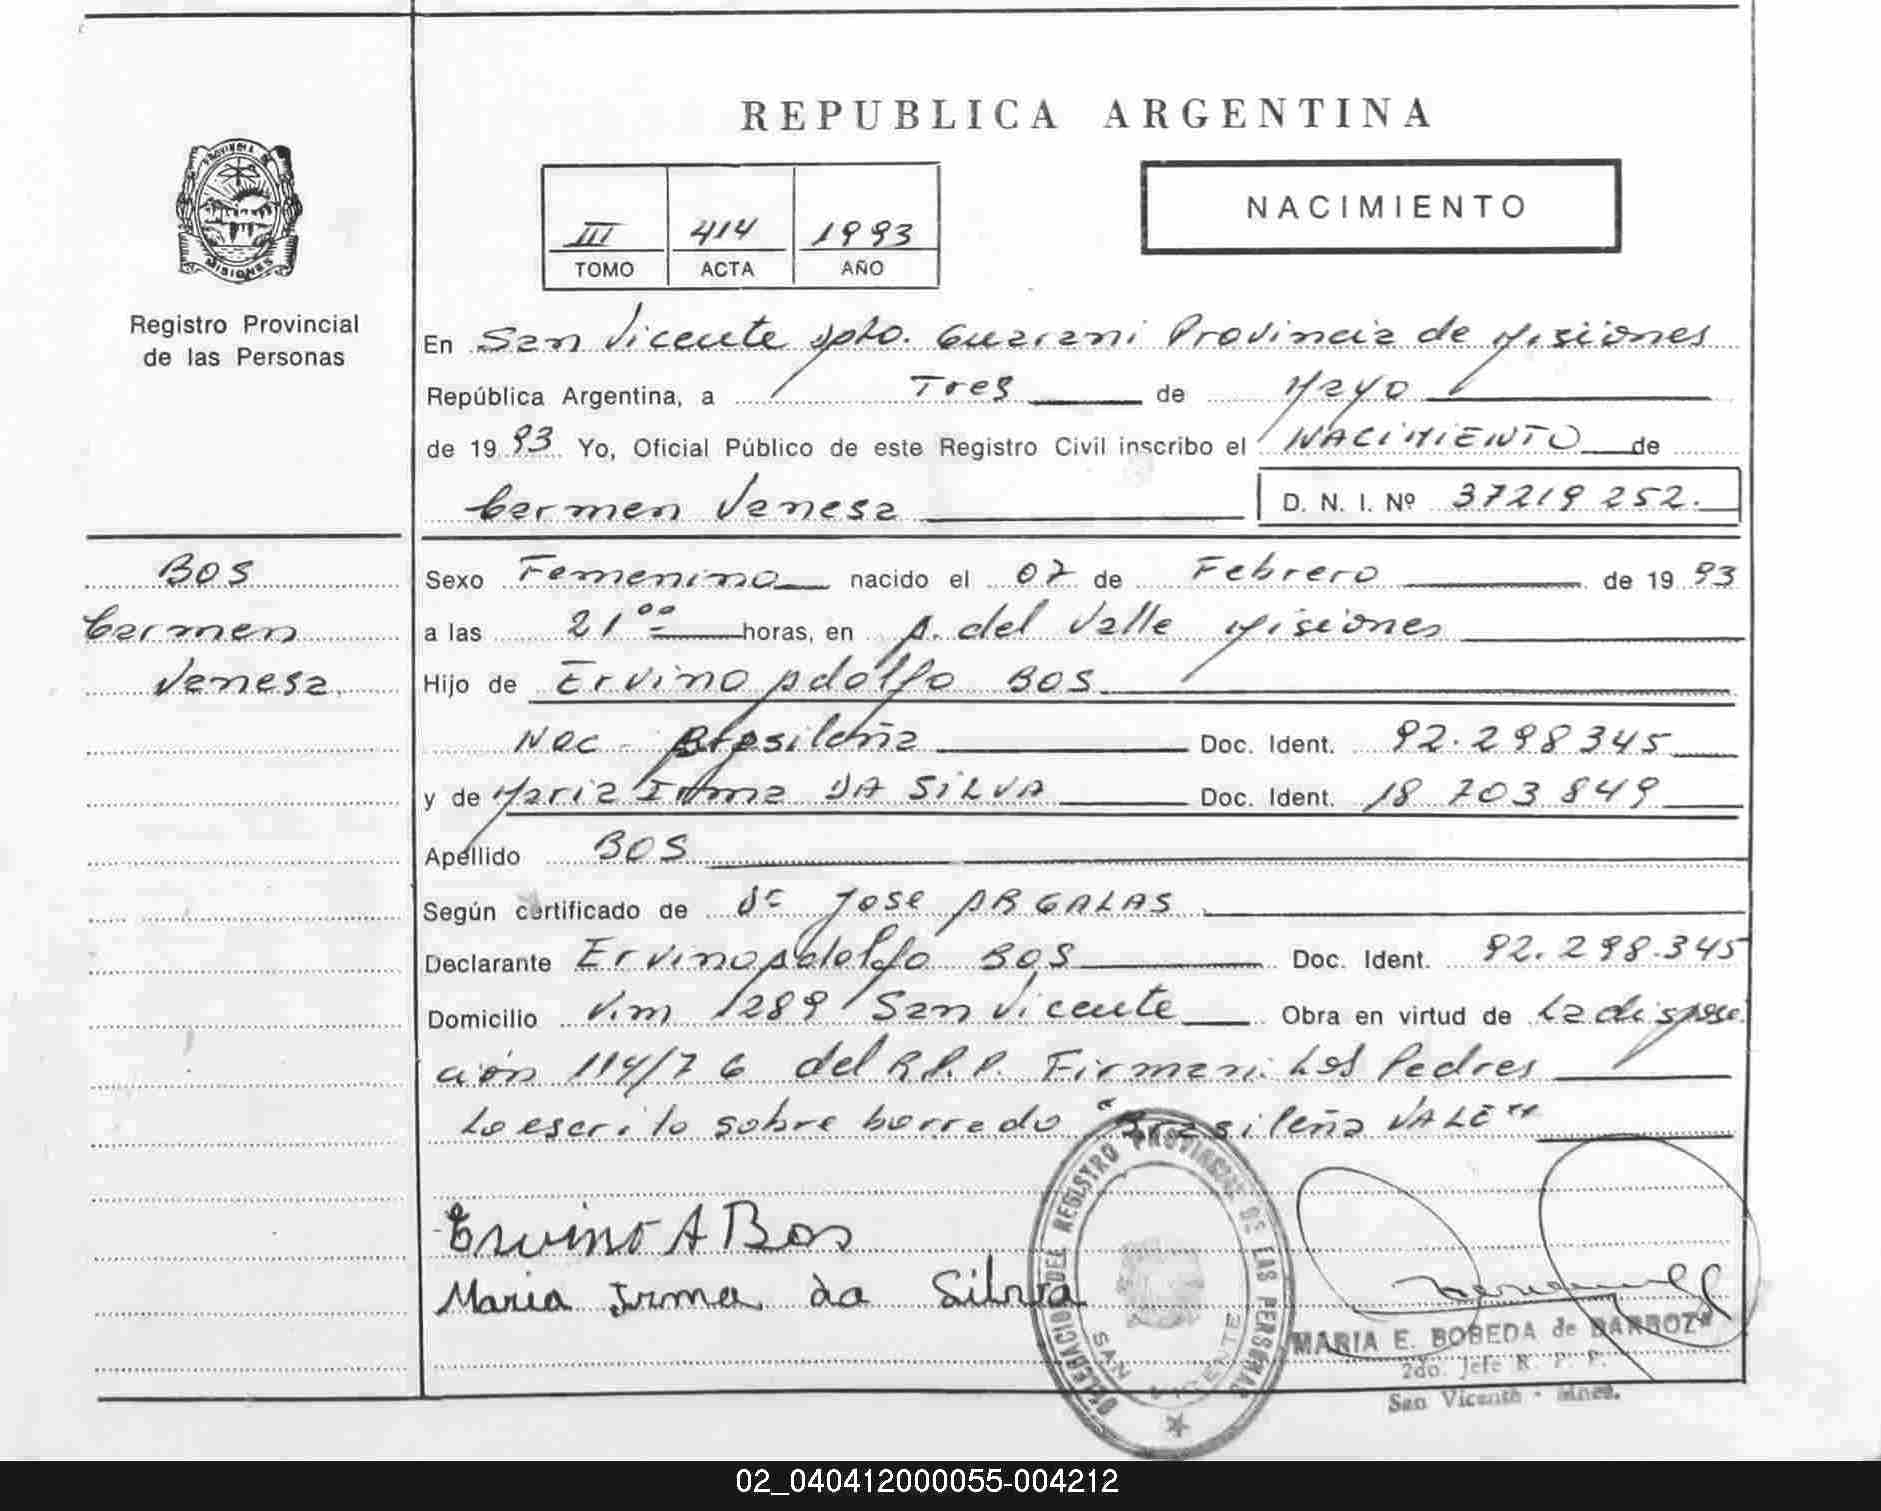 REPUBLICA ARGENTINA
PROVINCIA DE MISIONES
Registro Provincial
de las Personas
III 414 1993
TOMO ACTA AÑO
NACIMIENTO
En San Vicente Dpto. Guarani Provincia de Misiones
República Argentina, a Tres de Mayo
de 1993 Yo, Oficial Público de este Registro Civil inscribo el NACIMIENTO de
Carmen Vanesa D. N. I. Nº 37219252.
BOS
Carmen
Vanesa
Sexo Femenino nacido el 07 de Febrero de 1993
a las 21ºº horas, en A. del Valle Misiones
Hijo de Ervino Adolfo BOS
Nac - Brasileña Doc. Ident. 92.298345
y de Maria Irma DA SILVA Doc. Ident. 18 703 849
Apellido BOS
Según certificado de Dr Jose ARGALAS
Declarante Ervino Adolfo BOS Doc. Ident. 92.298.345
Domicilio V.m 1289 San Vicente Obra en virtud de La disposi
ción 114/76 del R.P.P. Firman: Los Padres
Lo escrito sobre borrado "Brasileña VALE"
Ervino A Bos
Maria Irma da Silvia
DELEGACION DEL REGISTRO PROVINCIAL DE LAS PERSONAS
SAN VICENTE
MARIA E. BOBEDA de BARBOZA
2do. Jefe R. P. P.
San Vicente - Mnes.
02_040412000055-004212